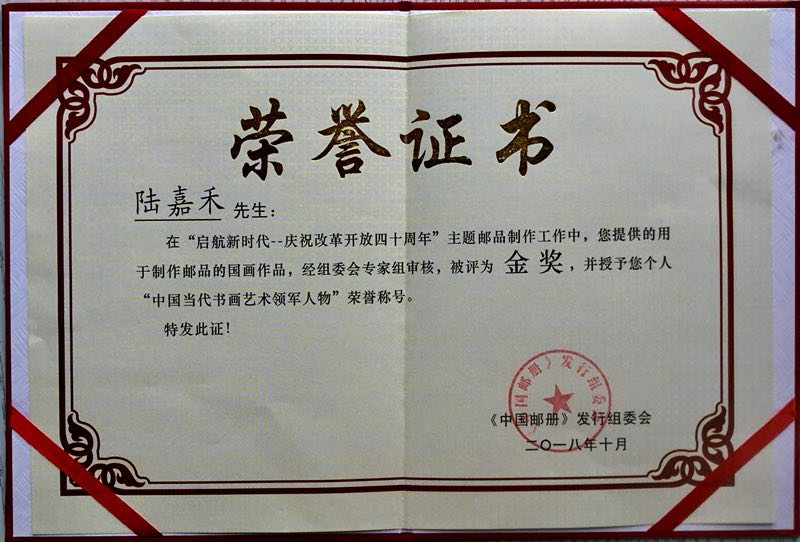 荣誉证书
陆嘉禾 先生：
在“启航新时代--庆祝改革开放四十周年”主题邮品制作工作中，您提供的用
于制作邮品的国画作品，经组委会专家组审核，被评为 金奖，并授予您个人
“中国当代书画艺术领军人物”荣誉称号。
特发此证！
《中国邮册》发行组委会
《中国邮册》发行组委会
二〇一八年十月